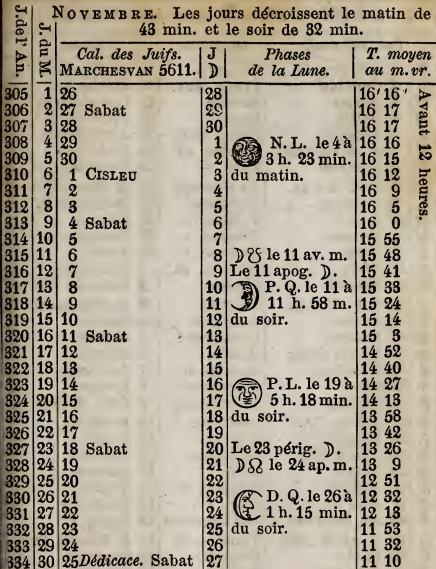 NOVEMBRE. Les jours décroissent le matin de
43 min. et le soir de 32 min.
J. de l'An. J. du M. Cal. des Juifs. J Phases T. moyen
MARCHESVAN 5611. ☽ de la Lune. au m. vr.
305 1 26 28 16' 16"
306 2 27 Sabat 29 16 17
307 3 28 30 16 17
308 4 29 1 N. L. le 4 à 16 16
309 5 30 2 3 h. 23 min. 16 15
310 6 1 CISLEU 3 du matin. 16 12
311 7 2 4 16 9
312 8 3 5 16 5
313 9 4 Sabat 6 16 0
314 10 5 7 15 55
315 11 6 8 ☽☋ le 11 av. m. 15 48
316 12 7 9 Le 11 apog. ☽. 15 41
317 13 8 10 P. Q. le 11 à 15 33
318 14 9 11 11 h. 58 m. 15 24
319 15 10 12 du soir. 15 14
320 16 11 Sabat 13 15 3
321 17 12 14 14 52
322 18 13 15 14 40
323 19 14 16 P. L. le 19 à 14 27
324 20 15 17 5 h. 18 min. 14 13
325 21 16 18 du soir. 13 58
326 22 17 19 13 42
327 23 18 Sabat 20 Le 23 périg. ☽. 13 26
328 24 19 21 ☽☊ le 24 ap. m. 13 9
329 25 20 22 12 51
330 26 21 23 D. Q. le 26 à 12 32
331 27 22 24 1 h. 15 min. 12 13
332 28 23 25 du soir. 11 53
333 29 24 26 11 32
334 30 25 Dédicace. Sabat 27 11 10
Avant 12 heures.